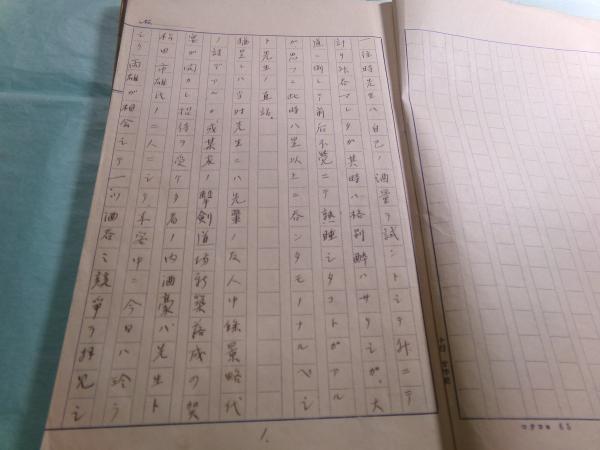 往時先生ハ自己ノ酒量ヲ試ントシテ升ニテ
計リ呑マレタガ其時ハ格別酔ハサタシガ、大
道ニ倒レテ前后不覚ニテ熟睡シタコトガアル
ガ思フニ此時ハ 以上ニ呑ンタモノナルベシ
ト先生ノ直話。
ハ当時先生ニハ先輩ノ友人中 景略代
ノ アル 或某家ノ撃剣道場新築落成の賀
宴が開カレ招待ヲ受ケタ者ノ内酒豪ハ先生ト
松田市雄氏ノ二人ニシテ来客中ニ今日ハ珍ラ
シク両雄が相会シテ 酒呑ミ競争ヲ拝見シ
1.
コクヨ 65